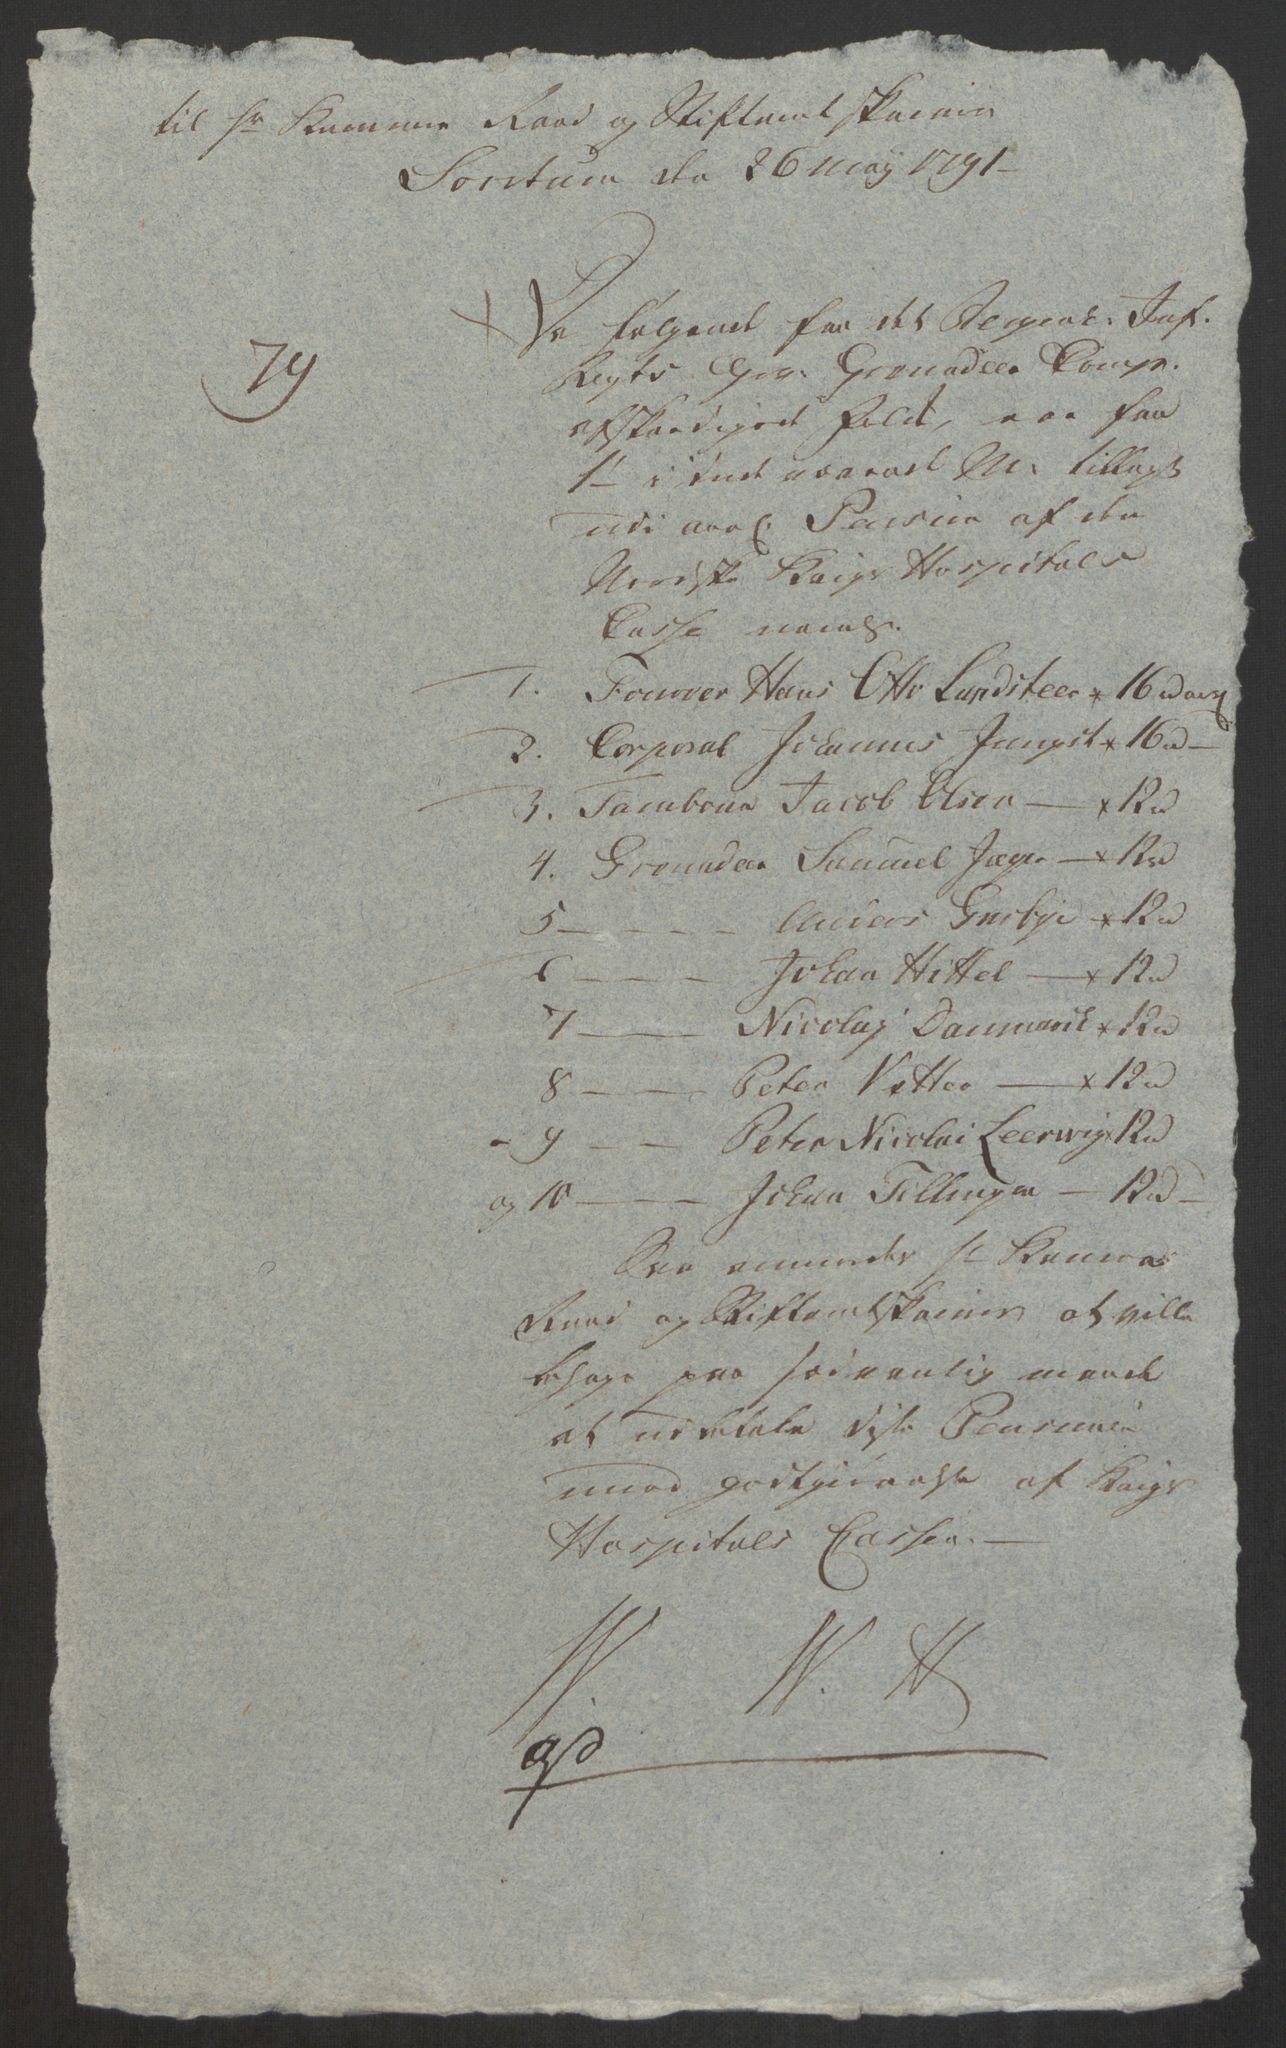 til Hr Kammer Raad og Stiftamtskriver
Sontum den 26 May 1791
79
De følgende fra det Bergenh: Inf.
Regts Gev. Grenadeer Comp.
afskeediget folk, ere fra
1te i inde værende M: tillagt
udi aarl. Pension af den
Norske Krigs Hospitals
Casse nemlig
1. Fourer Hans Otto Lundsteen 16 rd aarl
2. Corporal Johannes Jungst 16 rd
3. Tambour Jacob Olsen 12 rd
4. Grenadeer Samuel Jæger 12 rd
5 Anders Gusbye 12 rd
6 Johan Hittel 12 rd
7 Nicolaj Danmarck 12 rd
8 Peter Vetter 12 rd
9 Peter Nicolai Leerwig 12 rd
og 10 Johan Tillinger 12 rd
Saa anmodes Hr Kammer
Raad og Stiftamtskriver at ville
behage paa sædvanlig maade
at udbetale disse Pensioner
mod godtgiørelse af Krigs
Hospitals Cassen.
W. W. H